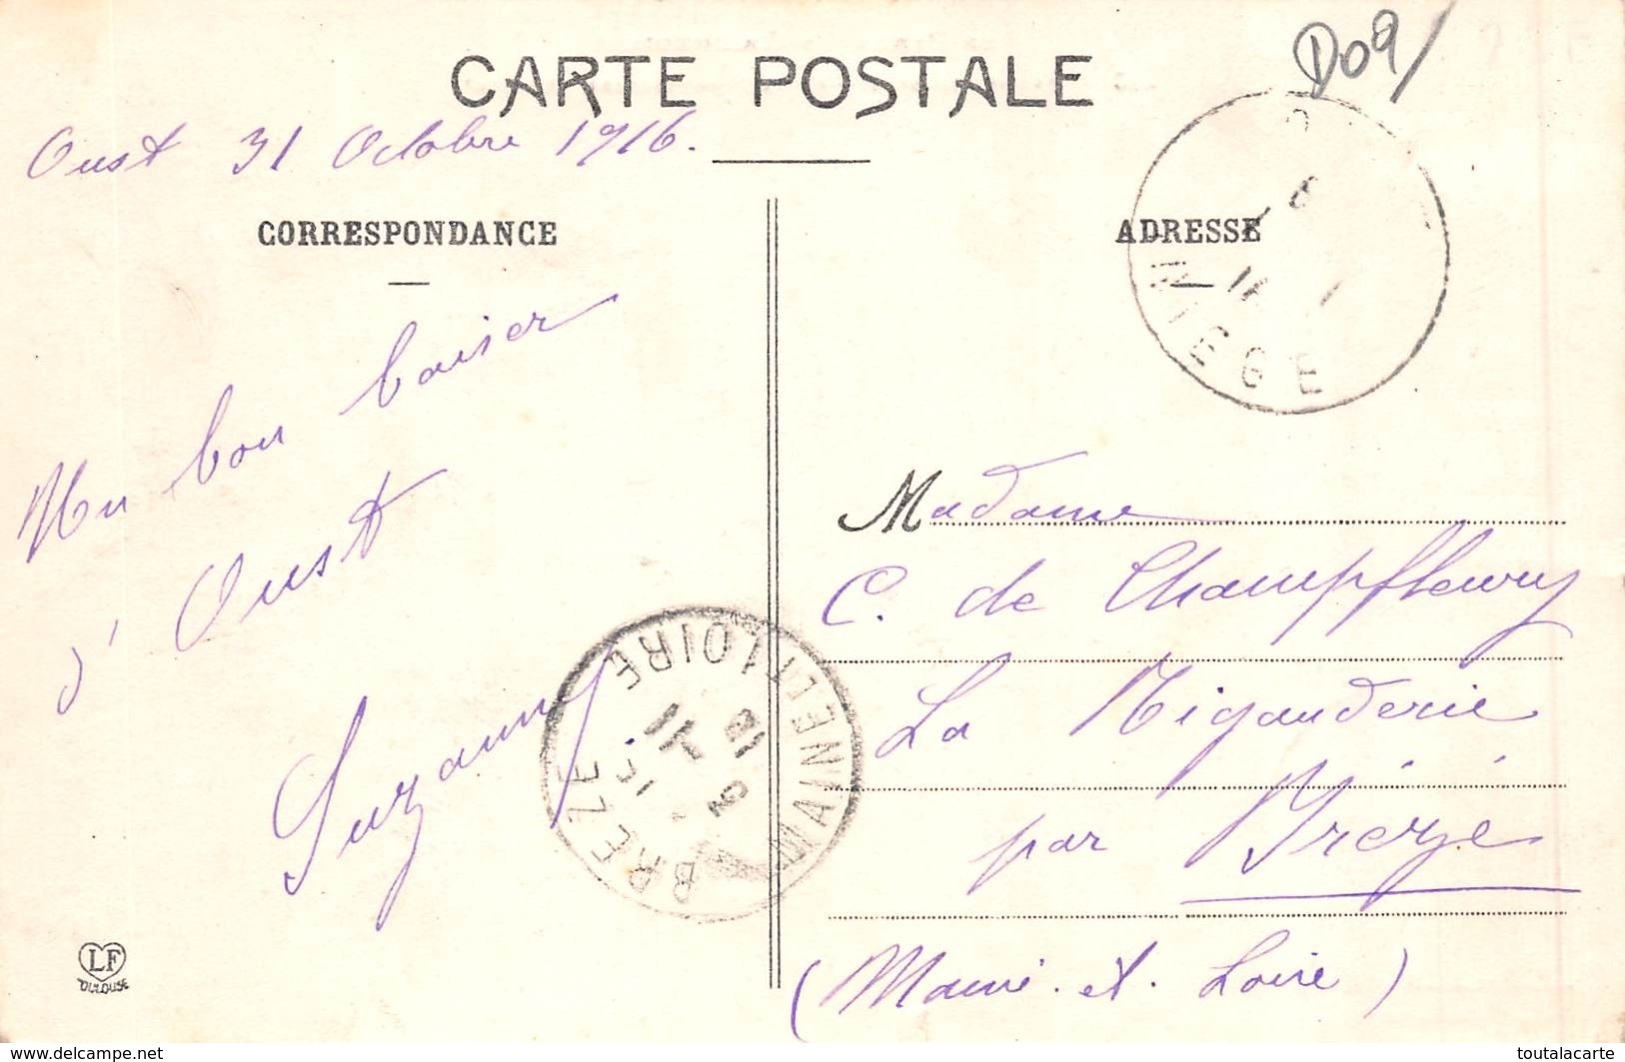 D09/
CARTE POSTALE
Oust 31 Octobre 1916.
CORRESPONDANCE
Un bon baiser
d'Oust
Suzanne
LF
TOULOUSE
ADRESSE
ARIEGE
Madame
C. de Champfleury
La Rigauderie
par Brézé
(Maine-et-Loire)
BREZE
MAINE ET LOIRE
www.delcampe.net
toutalacarte